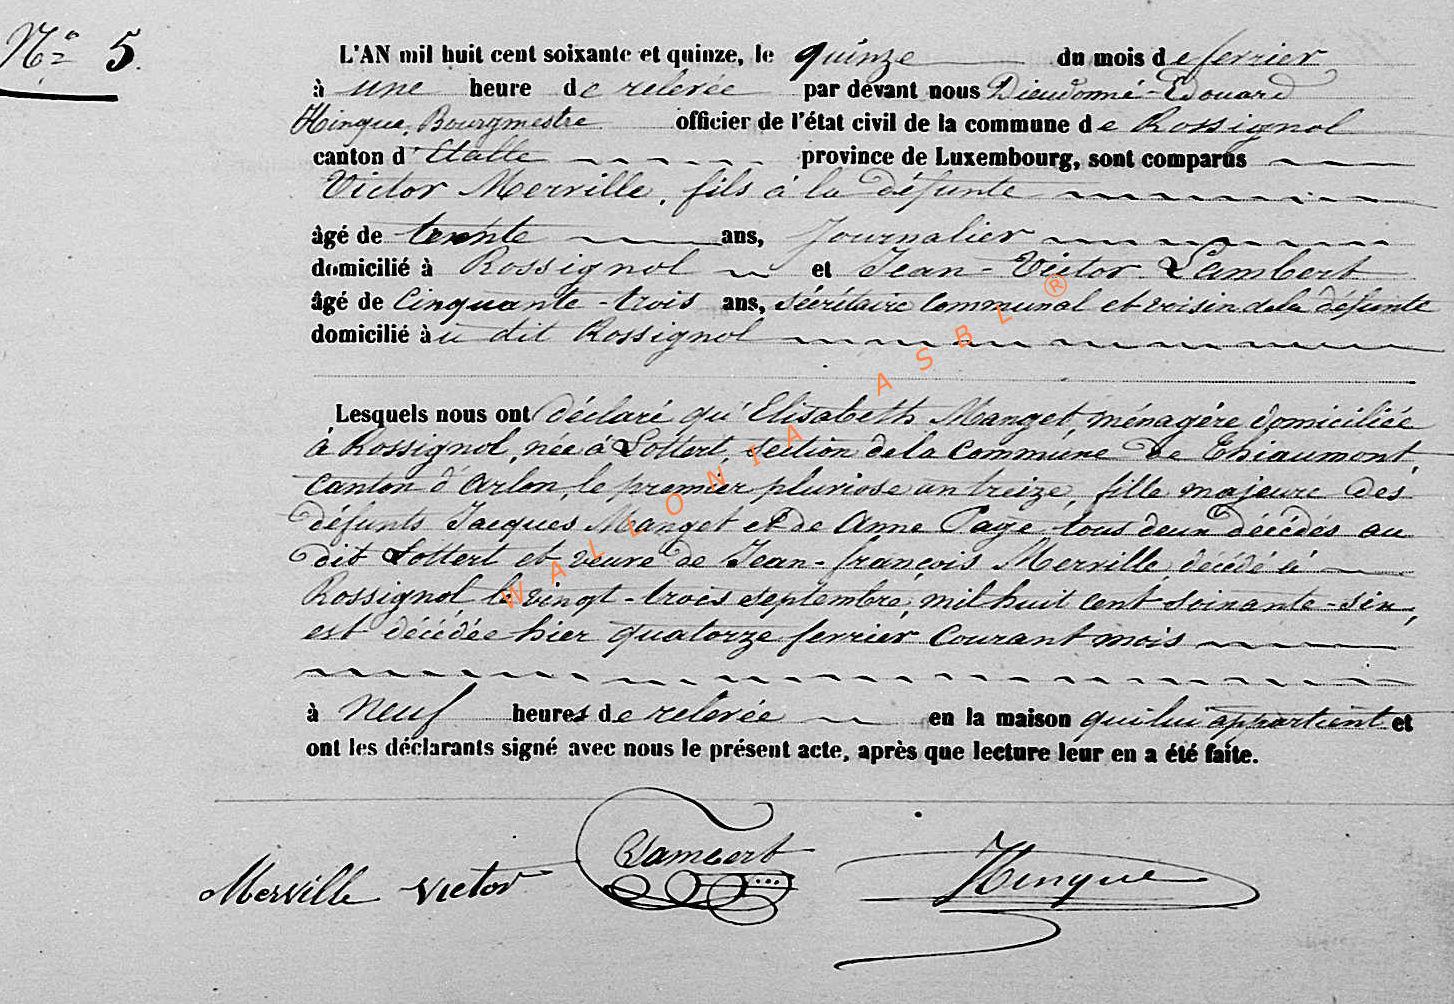 N° 5.
L'AN mil huit cent soixante et quinze, le quinze du mois de ferrier
à une heure de relevée par devant nous Dieudonné-Edouard
Hinque, Bourgmestre officier de l'état civil de la commune de Rossignol
canton d'Etalle province de Luxembourg, sont comparus
Victor Merville, fils à la défunte
âgé de trente ans, Journalier
domicilié à Rossignol et Jean-Victor Lambert
âgé de Cinquante-trois ans, sécrétaire Communal et voisin de la défunte
domicilié à u dit Rossignol
Lesquels nous ont déclaré qu'Elisabeth Manget, ménagère domiciliée
à Rossignol, née à Lottert, section de la Commune de Thiaumont,
Canton d'Arlon, le premier pluviose an treize, fille majeure des
défunts Jacques Manget et de Anne Page, tous deux décédés au
dit Lottert et veuve de Jean-françois Merville, décédé à
Rossignol, le vingt-trois septembre, mil huit cent soixante-six,
est décédée hier quatorze ferrier Courant mois
à neuf heures de relevée en la maison qui lui appartient et
ont les déclarants signé avec nous le présent acte, après que lecture leur en a été faite.
Merville Victor Lambert Hinque
WALLONIA ASBL ®